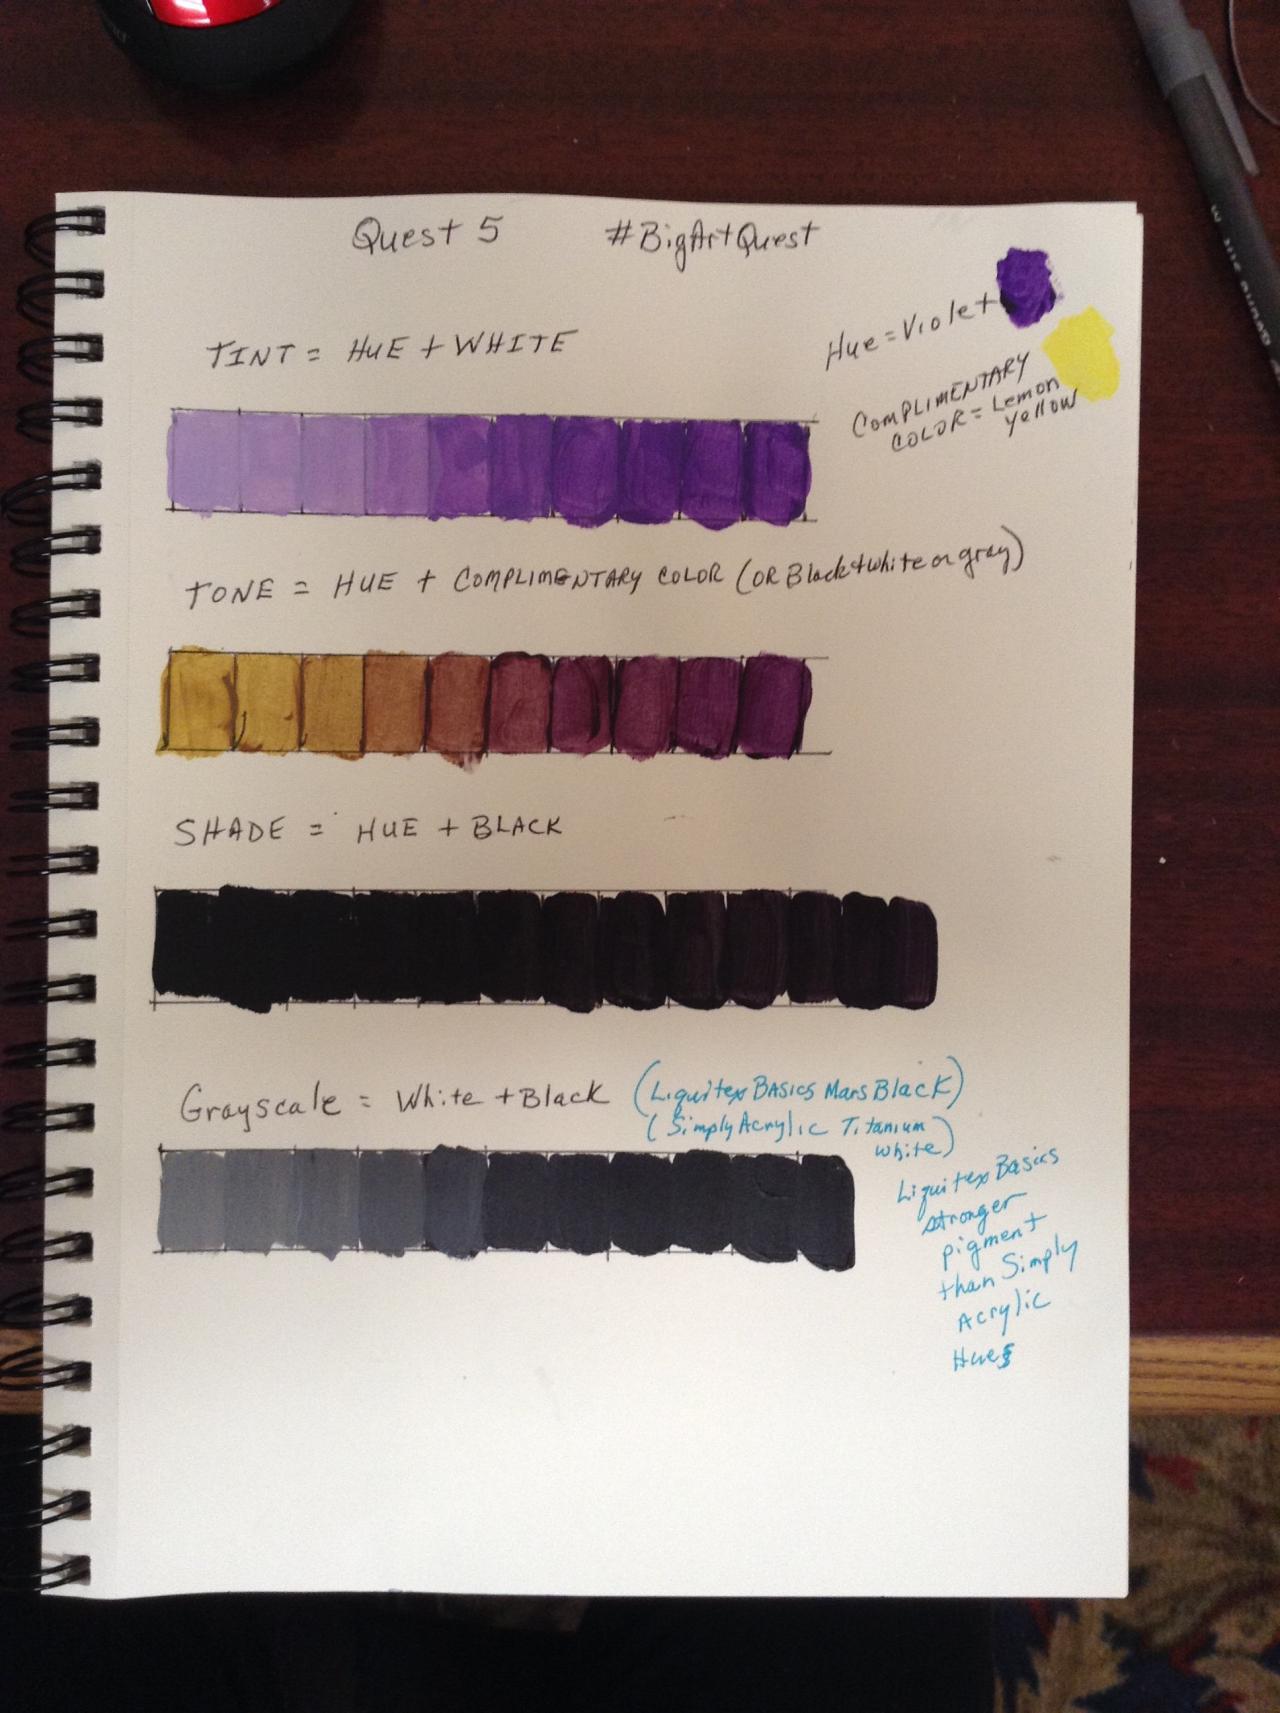 Quest 5 #BigArtQuest
Hue = Violet
TINT = HUE + WHITE
COMPLIMENTARY
COLOR = Lemon
Yellow
TONE = HUE + COMPLIMENTARY COLOR (OR Black + white or gray)
SHADE = HUE + BLACK
Grayscale = White + Black (Liquitex BASICS Mars Black)
(Simply Acrylic Titanium
white)
Liquitex Basics
stronger
pigment
than Simply
Acrylic
Hues